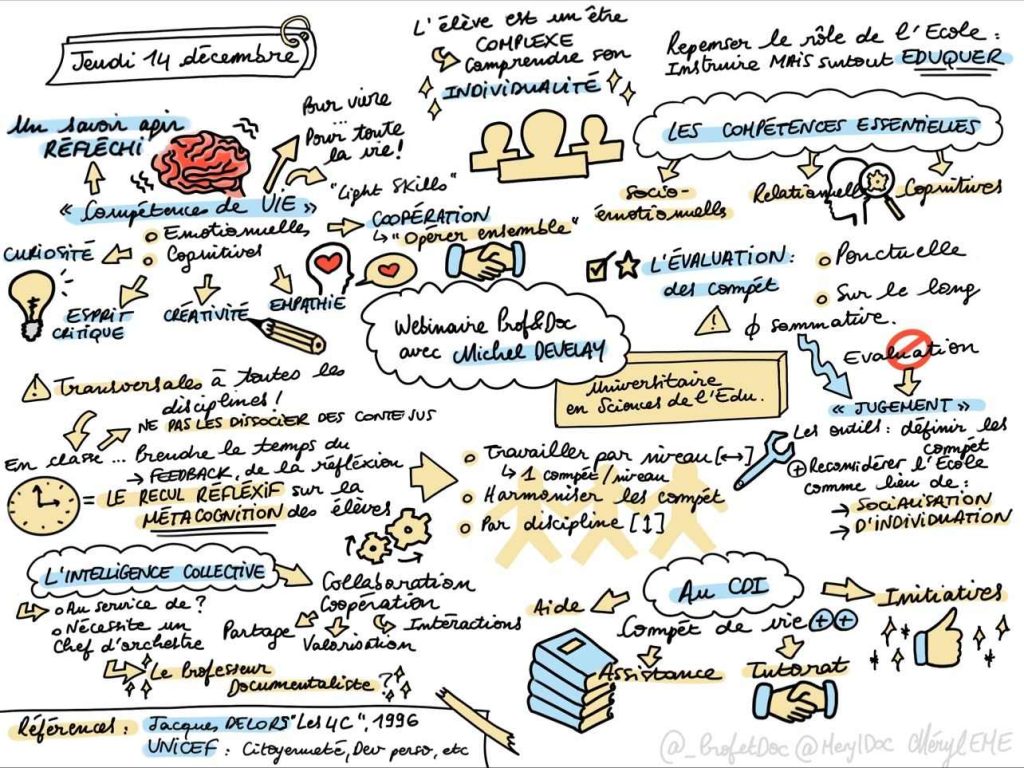 Jeudi 14 décembre
L'élève est un être
COMPLEXE
Comprendre son
INDIVIDUALITÉ
Repenser le rôle de l'Ecole :
Instruire MAIS surtout EDUQUER
LES COMPÉTENCES ESSENTIELLES
Socio-
émotionnelles
Relationnelles
Cognitives
Un savoir agir
RÉFLÉCHI
Pour vivre
...
Pour toute
la vie !
"Light Skills"
« Compétences de VIE »
Emotionnelles
Cognitives
CURIOSITÉ
ESPRIT
CRITIQUE
CRÉATIVITÉ
EMPATHIE
COOPÉRATION
"Opérer ensemble"
Webinaire Prof&Doc
avec Michel DEVELAY
Universitaire
en Sciences de l'Edu.
L'ÉVALUATION :
des compét
Ponctuelle
Sur le long
ϕ sommative.
Evaluation
« JUGEMENT »
Les outils : définir les
compét
+ Reconsidérer l'École
comme lieu de :
→ SOCIALISATION
→ D'INDIVIDUATION
Transversales à toutes les
disciplines !
NE PAS LES DISSOCIER DES CONTENUS
En classe ... Prendre le temps du
→ FEEDBACK, de la réfléxion
= LE RECUL RÉFLÉXIF sur la
MÉTACOGNITION des élèves
Travailler par niveau [↔]
↳ 1 compét/niveau
Harmoniser les compét
Par discipline [↕]
L'INTELLIGENCE COLLECTIVE
Au service de ?
Nécessite un
Chef d'orchestre
Le Professeur
Documentaliste ?
Collaboration
Coopération
Intéractions
Partage
Valorisation
Au CDI
Compét de vie ++
Aide
Assistance
Tutorat
Initiatives
Références :
Jacques DELORS "Les 4C", 1996
UNICEF : Citoyenneté, Dev perso, etc
@_ProfetDoc @MerylDoc Méryl EME